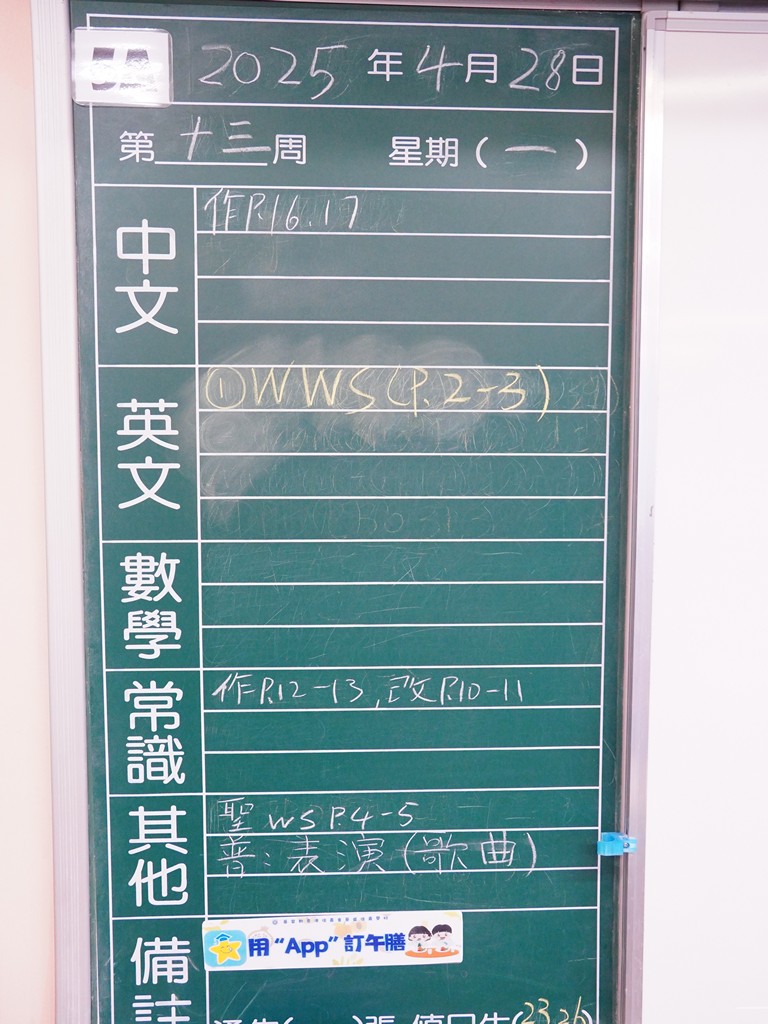 2025年4月28日
第十三周 星期(一)
中文
作P.16.17
英文
①WWS(P.2-3)
數學
常識
作P.12-13,改P.10-11
其他
聖 WS P.4-5
普:表演(歌曲)
備註
用“App”訂午膳
通告( )張 值日生(23,26)